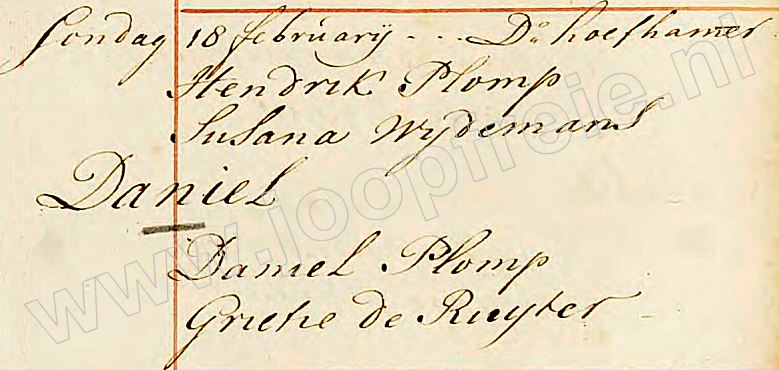 Sondag 18 februarij - - - Do. hoefhamer
Hendrik Plomp
Susana Wijdemans
Daniel
Daniel Plomp
Grietie de Ruyter
www.joopfreie.nl